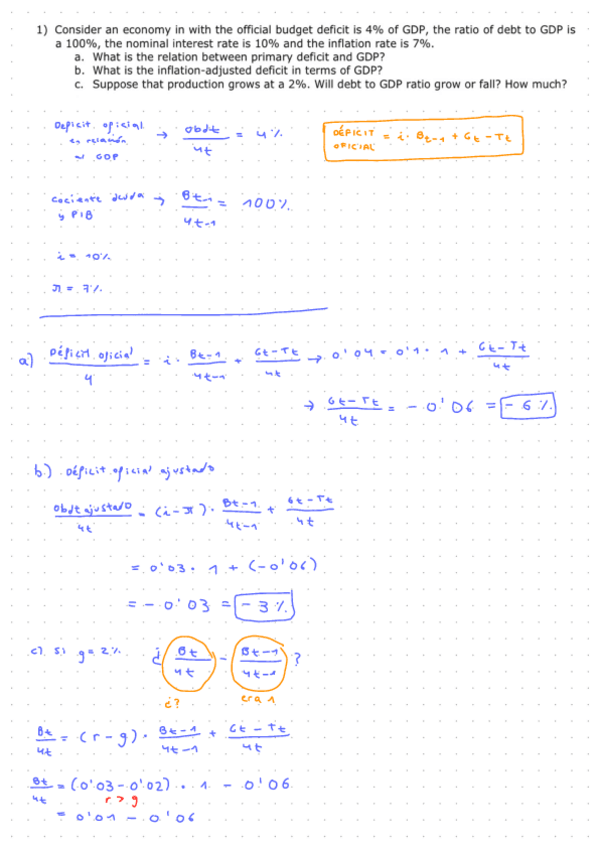 1) Consider an economy in with the official budget deficit is 4% of GDP, the ratio of debt to GDP is
a 100%, the nominal interest rate is 10% and the inflation rate is 7%.
a. What is the relation between primary deficit and GDP?
b. What is the inflation-adjusted deficit in terms of GDP?
c. Suppose that production grows at a 2%. Will debt to GDP ratio grow or fall? How much?
Deficit oficial en relación al GDP → obdt / Yt = 4%
DÉFICIT OFICIAL = i · Bt-1 + Gt - Tt
Cociente deuda y PIB → Bt-1 / Yt-1 = 100%
i = 10%
π = 7%
a) Déficit oficial / Y = i · Bt-1 / Yt-1 + Gt-Tt / Yt → 0'04 = 0'1 · 1 + Gt-Tt / Yt
→ Gt-Tt / Yt = -0'06 = -6%
b) Déficit oficial ajustado
obdt ajustado / Yt = (i-π) · Bt-1 / Yt-1 + Gt-Tt / Yt
= 0'03 · 1 + (-0'06)
= -0'03 = -3%
c) Si g = 2% ¿ Bt / Yt - Bt-1 / Yt-1 ?
¿? era 1
Bt / Yt = (r-g) · Bt-1 / Yt-1 + Gt-Tt / Yt
Bt / Yt = (0'03-0'02) · 1 - 0'06
r > g
= 0'01 - 0'06